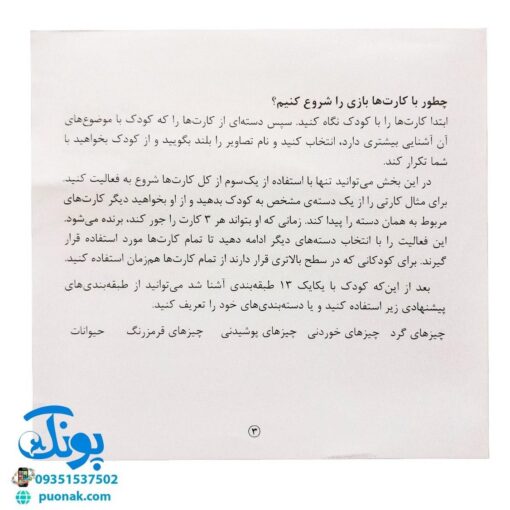 چطور با کارت‌ها بازی را شروع کنیم؟
ابتدا کارت‌ها را با کودک نگاه کنید. سپس دسته‌ای از کارت‌ها را که کودک با موضوع‌های
آن آشنایی بیشتری دارد، انتخاب کنید و نام تصاویر را بلند بگویید و از کودک بخواهید با
شما تکرار کند.
در این بخش می‌توانید تنها با استفاده از یک‌سوم از کل کارت‌ها شروع به فعالیت کنید.
برای مثال کارتی را از یک دسته‌ی مشخص به کودک بدهید و از او بخواهید دیگر کارت‌های
مربوط به همان دسته را پیدا کند. زمانی که او بتواند هر ۳ کارت را جور کند، برنده می‌شود.
این فعالیت را با انتخاب دسته‌های دیگر ادامه دهید تا تمام کارت‌ها مورد استفاده قرار
گیرند. برای کودکانی که در سطح بالاتری قرار دارند از تمام کارت‌ها هم‌زمان استفاده کنید.
بعد از این‌که کودک با یکایک ۱۳ طبقه‌بندی آشنا شد می‌توانید از طبقه‌بندی‌های
پیشنهادی زیر استفاده کنید و یا دسته‌بندی‌های خود را تعریف کنید.
چیزهای گرد چیزهای خوردنی چیزهای پوشیدنی چیزهای قرمزرنگ حیوانات
۳
پونک
09351537502
puonak.com